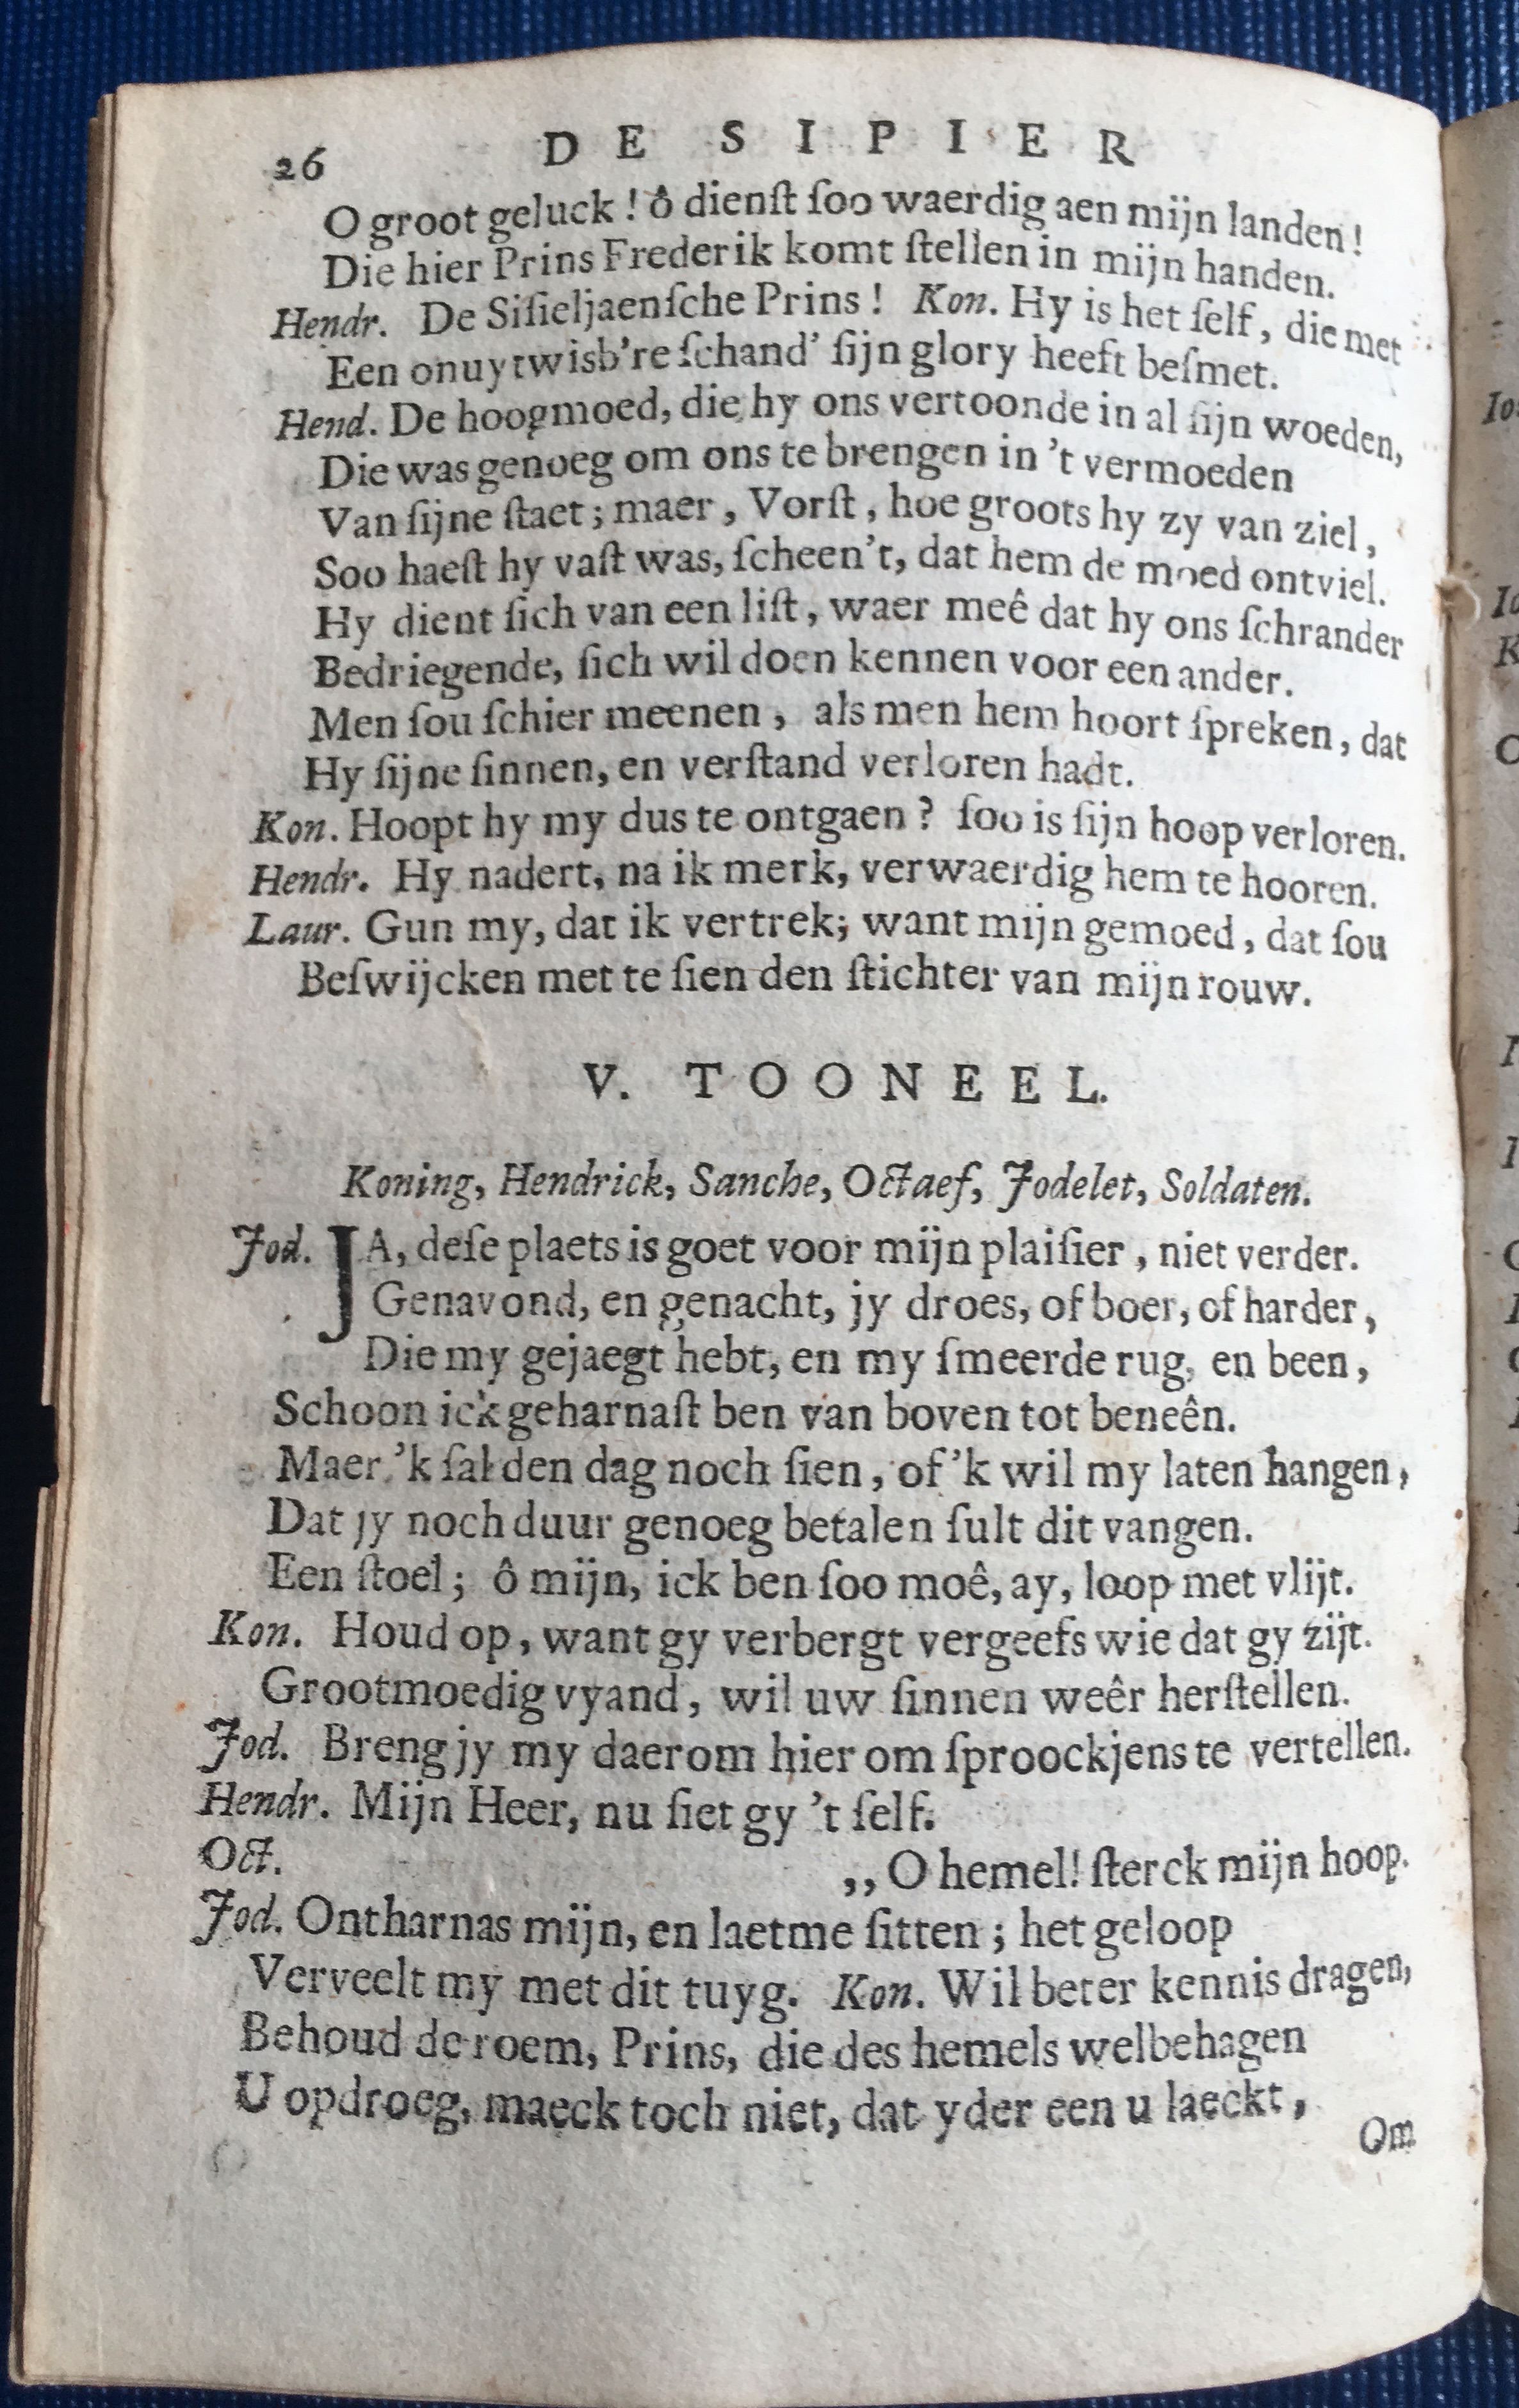 26 DE SIPIER
O groot geluck! ô dienſt ſoo waerdig aen mijn landen!
Die hier Prins Frederik komt ſtellen in mijn handen.
Hendr. De Siſieljaenſche Prins! Kon. Hy is het ſelf, die met
Een onuytwisb're ſchand' ſijn glory heeft beſmet.
Hend. De hoogmoed, die hy ons vertoonde in al ſijn woeden,
Die was genoeg om ons te brengen in 't vermoeden
Van ſijne ſtaet; maer, Vorſt, hoe groots hy zy van ziel,
Soo haeſt hy vaſt was, ſcheen't, dat hem de moed ontviel.
Hy dient ſich van een liſt, waer meê dat hy ons ſchrander
Bedriegende, ſich wil doen kennen voor een ander.
Men ſou ſchier meenen, als men hem hoort ſpreken, dat
Hy ſijne ſinnen, en verſtand verloren hadt.
Kon. Hoopt hy my dus te ontgaen? ſoo is ſijn hoop verloren.
Hendr. Hy nadert, na ik merk, verwaerdig hem te hooren.
Laur. Gun my, dat ik vertrek; want mijn gemoed, dat ſou
Beſwijcken met te ſien den ſtichter van mijn rouw.
V. TOONEEL.
Koning, Hendrick, Sanche, Octaef, Jodelet, Soldaten.
Jod. JA, deſe plaets is goet voor mijn plaiſier, niet verder.
Genavond, en genacht, jy droes, of boer, of harder,
Die my gejaegt hebt, en my ſmeerde rug, en been,
Schoon ick geharnaſt ben van boven tot beneên.
Maer 'k ſal den dag noch ſien, of 'k wil my laten hangen,
Dat jy noch duur genoeg betalen ſult dit vangen.
Een ſtoel; ô mijn, ick ben ſoo moê, ay, loop met vlijt.
Kon. Houd op, want gy verbergt vergeefs wie dat gy zijt.
Grootmoedig vyand, wil uw ſinnen weêr herſtellen.
Jod. Breng jy my daerom hier om ſproockjens te vertellen.
Hendr. Mijn Heer, nu ſiet gy 't ſelf.
Oct. ,, O hemel! ſterck mijn hoop.
Jod. Ontharnas mijn, en laetme ſitten; het geloop
Verveelt my met dit tuyg. Kon. Wil beter kennis dragen,
Behoud de roem, Prins, die des hemels welbehagen
U opdroeg, maeck toch niet, dat yder een u laeckt,
Om